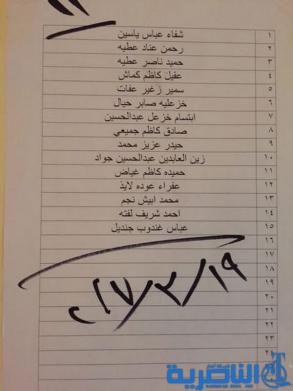 ١ شفاء عباس ياسين
٢ رحمن عناد عطيه
٣ حميد ناصر عطيه
٤ عقيل كاظم كماش
٥ سمير زغير عفات
٦ خزعليه صابر حيال
٧ ابتسام خزعل عبدالحسين
٨ صادق كاظم جميعي
٩ حيدر عزيز محمد
١٠ زين العابدين عبدالحسين جواد
١١ حميده كاظم غياض
١٢ عفراء عوده لايذ
١٣ محمد ابيش نجم
١٤ احمد شريف لفته
١٥ عباس غندوب جنديل
١٦
١٧
١٨
١٩
٢٠
٢١
٢٢
٢٣
٢٠١٧/٣/١٩
الناصرية